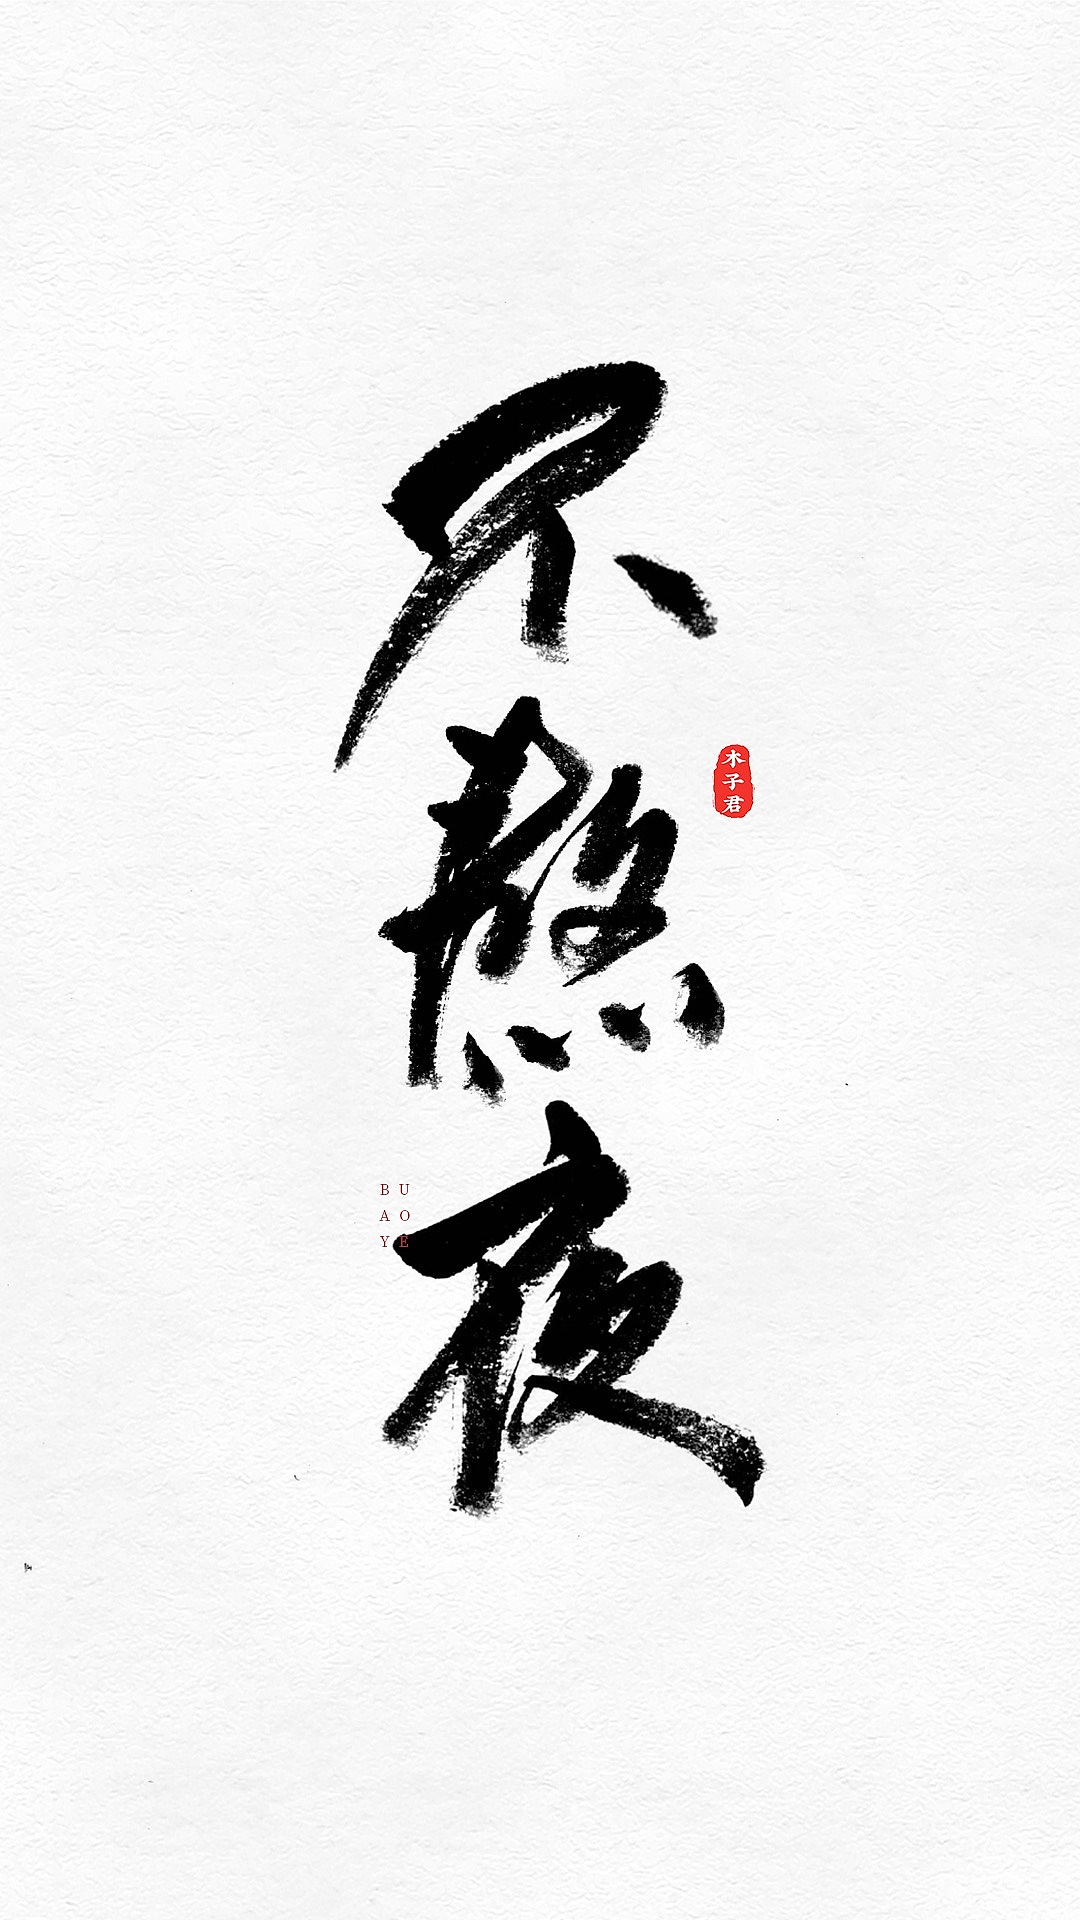 不熬夜
木子君
BU
AO
YE